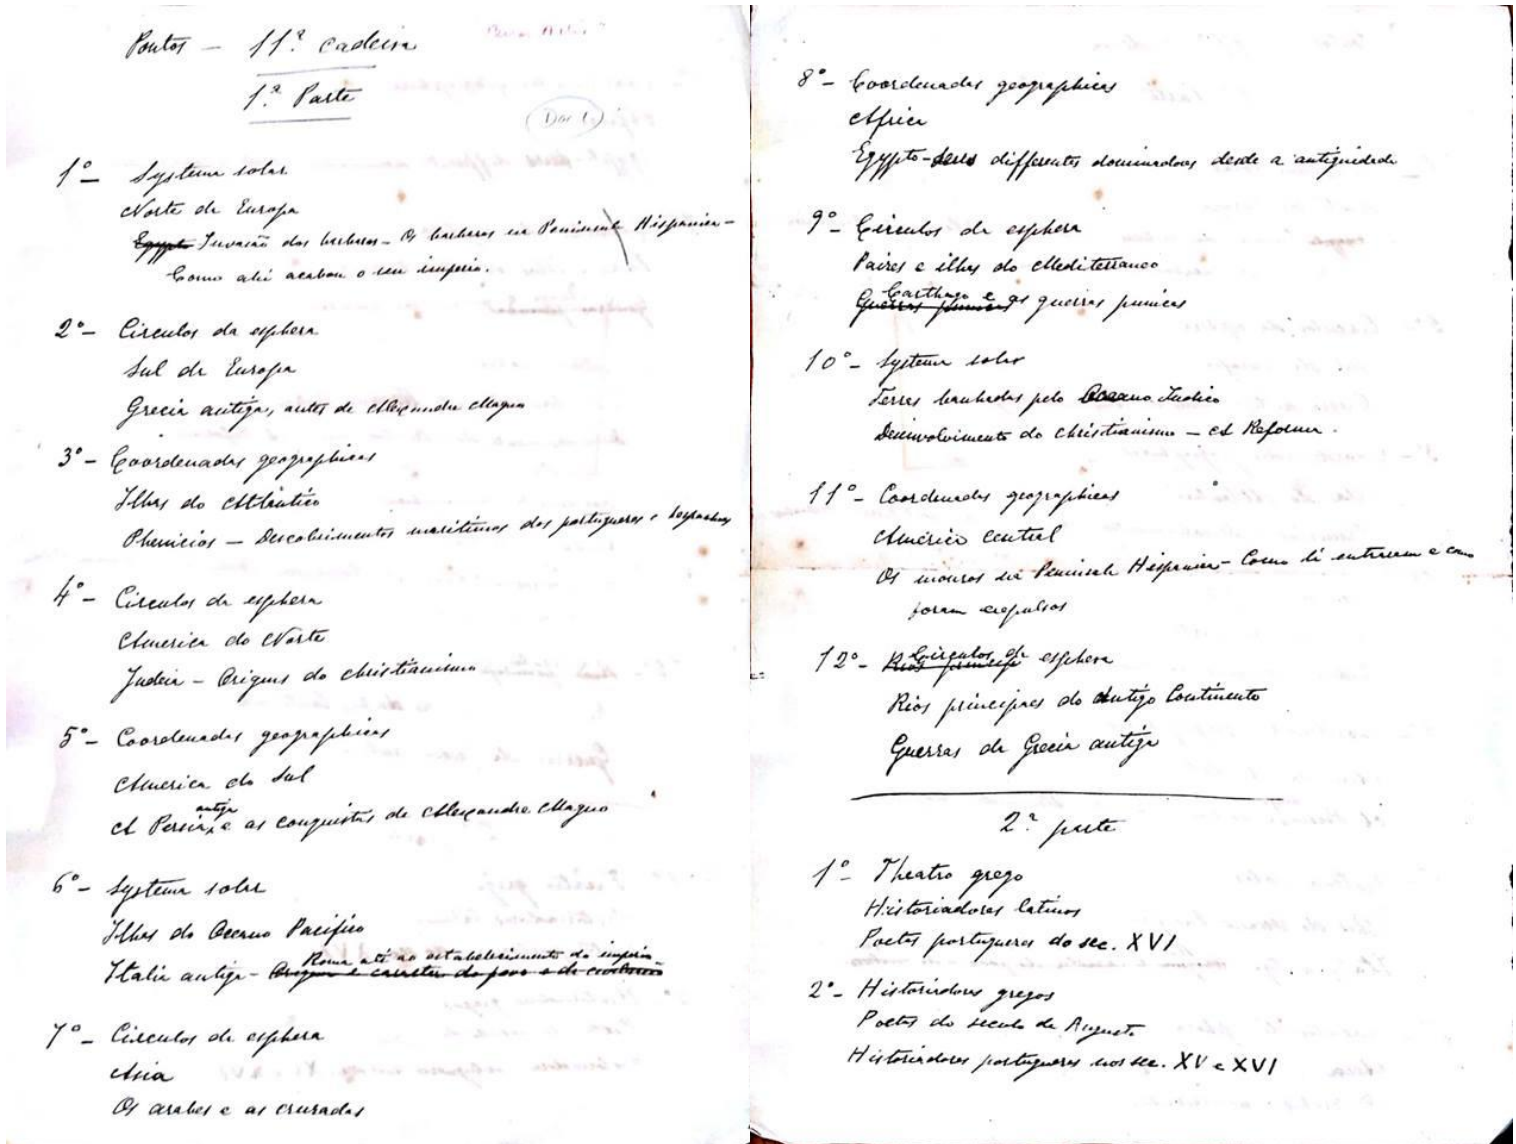 Pontos — 11ª cadeira
1ª Parte
(Doc 1)
1º — Systema solar
Norte da Europa
Egypto Invasão dos barbaros — Os barbaros na Peninsula Hispanica —
Como ahi acabou o seu imperio.
2º — Circulos da esphera
Sul da Europa
Grecia antiga, antes de Alexandre Magno
3º — Coordenadas geographicas
Ilhas do Atlantico
Phenicios — Descobrimentos maritimos dos portugueses e hespanhoes
4º — Circulos da esphera
America do Norte
Judeia — Origens do christianismo
5º — Coordenadas geographicas
America do Sul
A Persia antiga e as conquistas de Alexandre Magno
6º — Systema solar
Ilhas do Oceano Pacifico
Roma até ao estabelecimento do imperio —
Italia antiga — Origem e caracter do povo e da
7º — Circulos da esphera
Asia
Os arabes e as cruzadas
8º — Coordenadas geographicas
Africa
Egypto — seus differentes dominadores desde a antiguidade
9º — Circulos da esphera
Paizes e ilhas do Mediterraneo
Carthago e as guerras punicas
Guerras punicas
10º — Systema solar
Terras banhadas pelo Oceano Indico
Desinvolvimento do christianismo — A Reforma.
11º — Coordenadas geographicas
America central
Os mouros na Peninsula Hispanica — Como lá entraram e como
foram expulsos
12º — Circulos da esphera
Rios princip
Rios principaes do Antigo Continente
Guerras da Grecia antiga
2ª parte
1º — Theatro grego
Historiadores latinos
Poetas portugueses do sec. XVI
2º — Historiadores gregos
Poetas do seculo de Augusto
Historiadores portugueses nos sec. XV e XVI